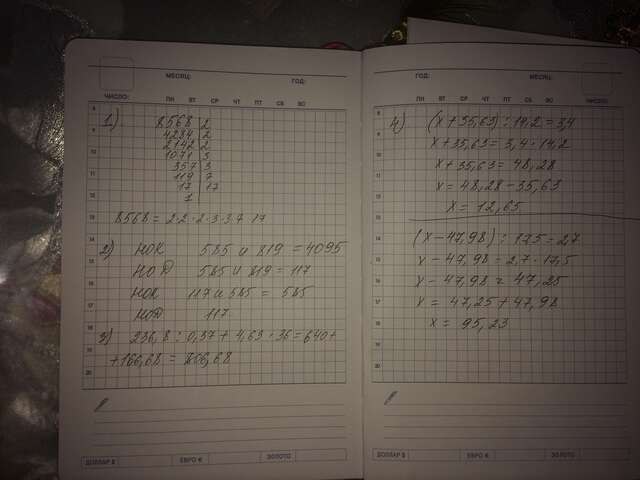 МЕСЯЦ: ГОД:
ЧИСЛО: ПН ВТ СР ЧТ ПТ СБ ВС
1) 8568 | 2
4284 | 2
2142 | 2
1071 | 3
357 | 3
119 | 7
17 | 17
1
8568 = 2·2·2·3·3·7·17
2) НОК 585 и 819 = 4095
НОД 585 и 819 = 117
НОК 117 и 585 = 585
НОД 117
3) 236,8 : 0,37 + 4,63 · 36 = 640 +
+ 166,68 = 806,68
ДОЛЛАР $ ЕВРО € ЗОЛОТО
ГОД: МЕСЯЦ:
ПН ВТ СР ЧТ ПТ СБ ВС ЧИСЛО:
4) (x + 35,63) : 14,2 = 3,4
x + 35,63 = 3,4 · 14,2
x + 35,63 = 48,28
x = 48,28 - 35,63
x = 12,65
(x - 47,98) : 17,5 = 2,7
x - 47,98 = 2,7 · 17,5
x - 47,98 = 47,25
x = 47,25 + 47,98
x = 95,23
ДОЛЛАР $ ЕВРО € ЗОЛОТО